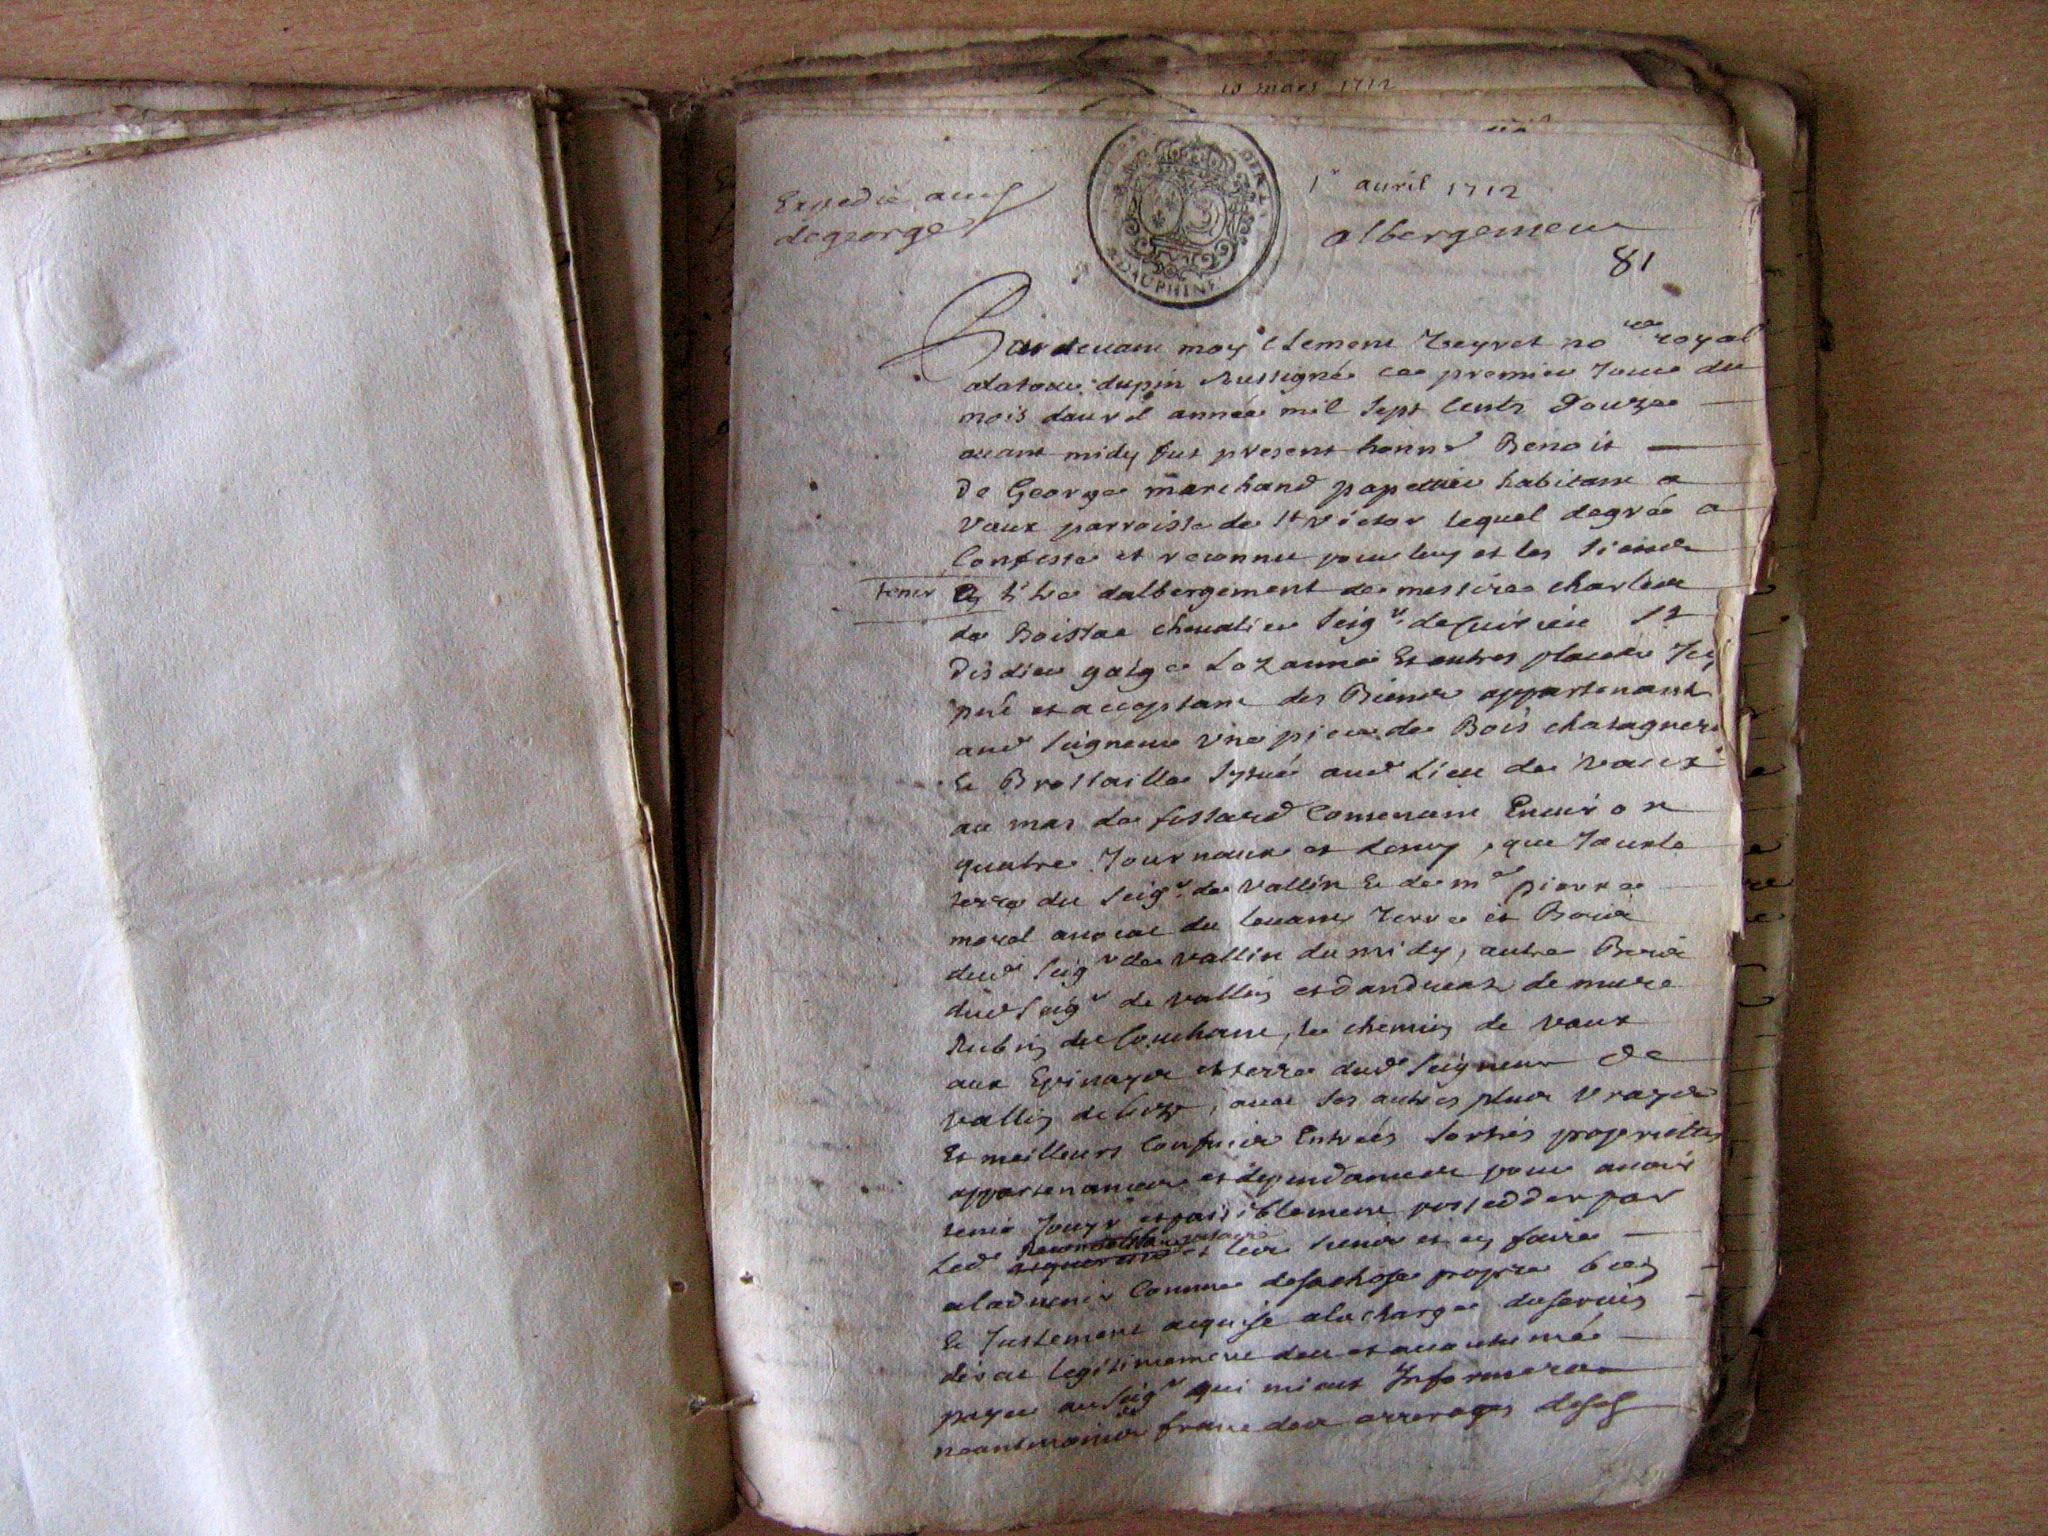 10 mars 1712
1r avril 1712
Expedié aud
degeorge
albergement
81
DAUPHINE
Pardevant moy Clement Teyret nore royal
alatour dupin sussigné ce premier Jour du
mois davril année mil sept cents douze
avant midy fut present honn Benoit
De George marchand papetier habitant a
Vaux parroisse de St Victor lequel degrée a
Confessé et reconnu pour luy et les siens
tenir a titre dalbergement de messire charles
de Boissac chevalier seigr de Cuirieu St
disdier gaige Lozanne Et autres places Icy
pnt et acceptant des Biens appartenant
aud seigneur Une piece de Bois chatagners
& Brossaille sytué aud Lieu de Vaux
au mas de fossard Contenant Environ
quatre Journaux et demy, que Jouxte
terre du seigr de Vallin & de me pierre
morel avocat du levant, Terre et Bois
dud seigr de Vallin du midy, autre Bois
dud seigr de Vallin et de mure
du Couchant, le chemin de Vaux
aux Epinayes et terre dud seigneur de
Vallin de bize, avec ses autres plus Vrayes
Et meilleurs Confins Entrées sorties proprietés
appartenances et dependances pour avoir
tenir Jouyr et paisiblement possedder par
Led et les siens et en faire
aladvenir Comme desachose propre bien
& Justement acquise ala charge duservis
dirat legitimement deu et accoutumée
payer au seigr qui mieux Informera
neantmoins franc des arrerages desd